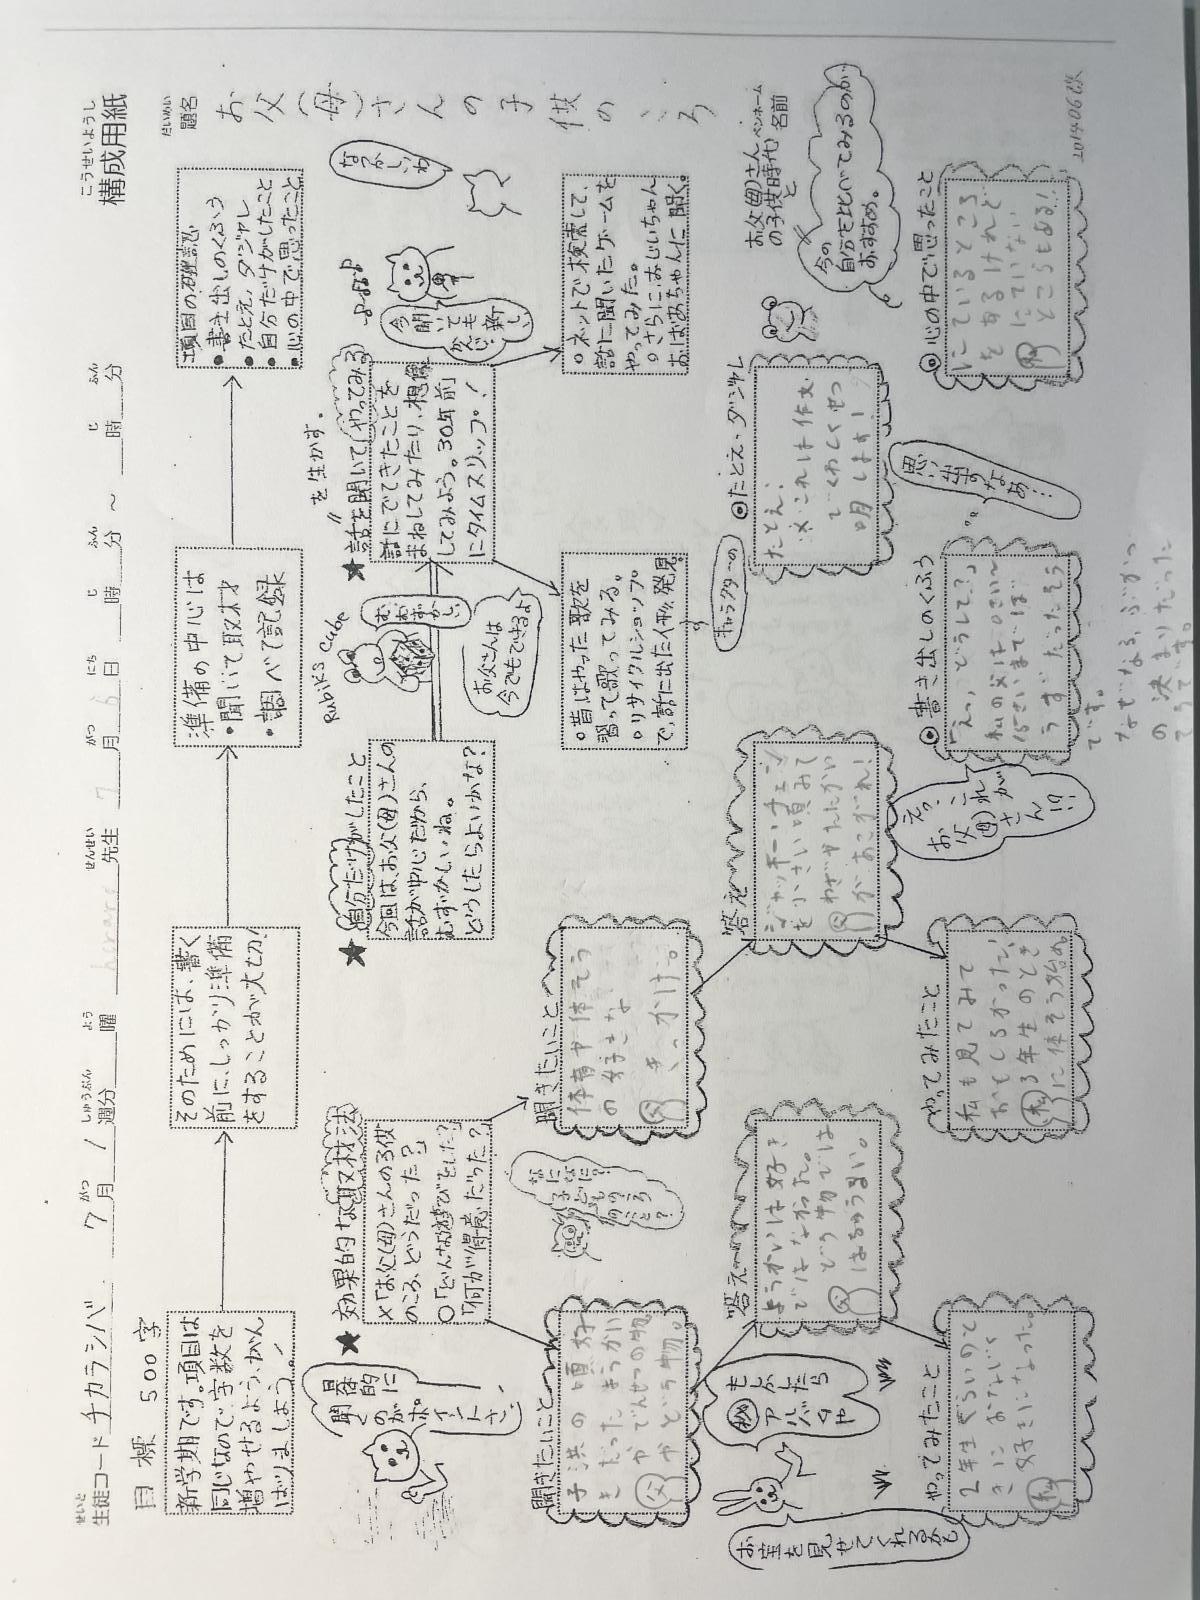 構成用紙
こうせいようし
生徒コード チカラシバ 7月1週分 曜 先生 7月6日 時 分 ～ 時 分
題名 お父(母)さんの子供のころ
目標 500字
新学期です。項目は
同じなので字数を
増やせるよう、がん
ばりましょう!
そのためには、書く
前に、しっかり準備
をすることが大切!
準備の中心は
・聞いて取材
・調べて記録
項目の確認
・書き出しのくふう
・たとえ，ダジャレ
・自分だけがしたこと
・心の中で思ったこと
聞くのがポイントさ
★効果的な取材法
×「お父(母)さんの子供
のころ、どうだった?」
○「どんな遊びをした?」
「何が得意だった?」
★自分だけがしたこと
今回は、お父(母)さんの
話が中心だから、
むずかしいね。
どうしたらよいかな?
Rubik's Cube
お父さんは
今でもできるよ
★話を聞いて(やってみる)
を生かす。
話にでてきたことを
まねしてみたり、想像
してみよう。30年前
にタイムスリップ!
なつかしいわ
聞きたいこと
子洪の頃好
きだったまっかい
やでんせつの物。
父 やという物。
聞きたいこと
体育や体そう
の好きな
父 きっかけ。
○昔はやった歌を
習って歌ってみる。
○リサイクルショップ
で、話に出た人形発見。
○ネットで検索して、
話に聞いたゲームを
やってみた。
○さらに、おじいちゃん
おばあちゃんに聞く。
お宝を見せてくれるかも
㊙
もしかしたら
アルバムや
答え
ようかいは好き
ではなかった。
どう物では
はちゅうるい。
答え
ジャッキー・チェン
を小さい頃みて
わざやたたかい
父 があこがれ!
キャラクターの
◎たとえ・ダジャレ
たとえ:
※これは作文
でくわしくせつ
明します!
お父(母)さん
の子供時代 と
ペンネーム
名前
今の
自分を比べてみるのが、
おすすめ。
やってみたこと
2年生ぐらいのと
きに おなじく
好きになった
私
やってみたこと
私も見てみて
おもしろかった、
私 3年生のとき
に体そう始め。
えっ?
これが
お父(母)さん!?
◎書き出しのくふう
「えっ、どうして?」
私の父は10さい～
15さいまでぼ
うずだったそう
です。
なぜなる、ぶかつ
の決まりだった
そうです。
思い出すなあ…
◎心の中で思ったこと
にているところ
もあるけれど
にていない
私 ところもある!
2014.06改